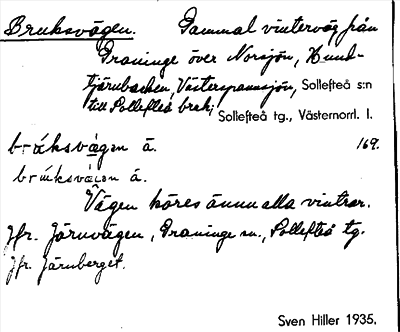 Bruksvägen. Gammal vinterväg från
Graninge över Norsjön, Hund-
tjärnbacken, Västerspannsjön, Sollefteå s:n
till Sollefteå bruk; Sollefteå tg., Västernorrl. l.
bruksvägen å. 169.
bruksvägen å.
Vägen köres ännu alla vintrar.
Jfr. Järnvägen, Graninge sn., Sollefteå tg.
Jfr Järnberget.
Sven Hiller 1935.